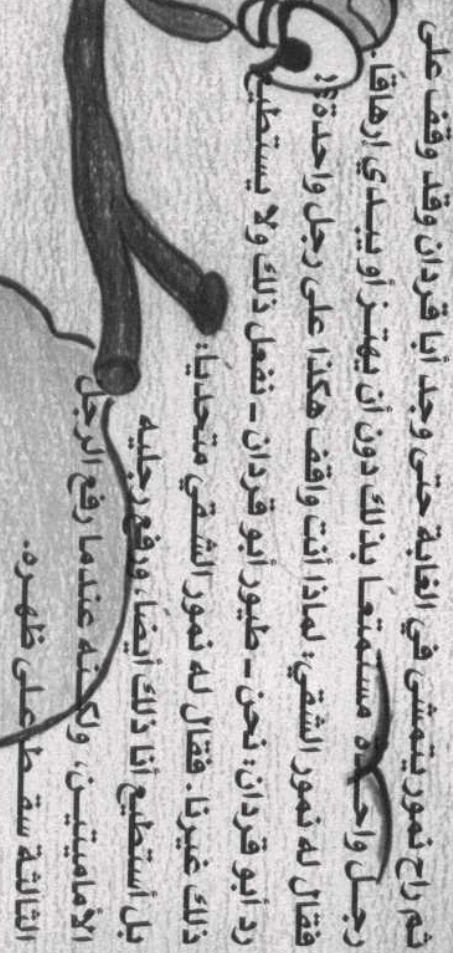 ثم راح نمور يتمشى في الغابة حتى وجد أبا قردان وقد وقف على
رجل واحدة مستمتعًا بذلك دون أن يهتز أو يبدي إرهاقًا.
فقال له نمور الشقي: لماذا أنت واقف هكذا على رجل واحدة؟!
رد أبو قردان: نحن - طيور أبو قردان - نفعل ذلك ولا يستطيع
ذلك غيرنا. فقال له نمور الشقي متحديا:
بل أستطيع أنا ذلك أيضًا، ورفع رجليه
الأماميتين، ولكنه عندما رفع الرجل
الثالثة سقط على ظهره.